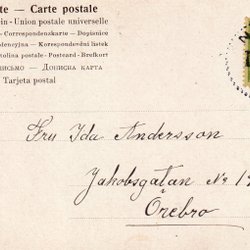 te — Carte postale
ein - Union postale universelle
- Correspondenzkarte - Dopisnice
dencyjna - Korespondenční listek
rtolina postale - Postcard - Brefkort
письмо — Дописна карта
Tarjeta postal
Fru Ida Andersson
Jakobsgatan No 1
Örebro